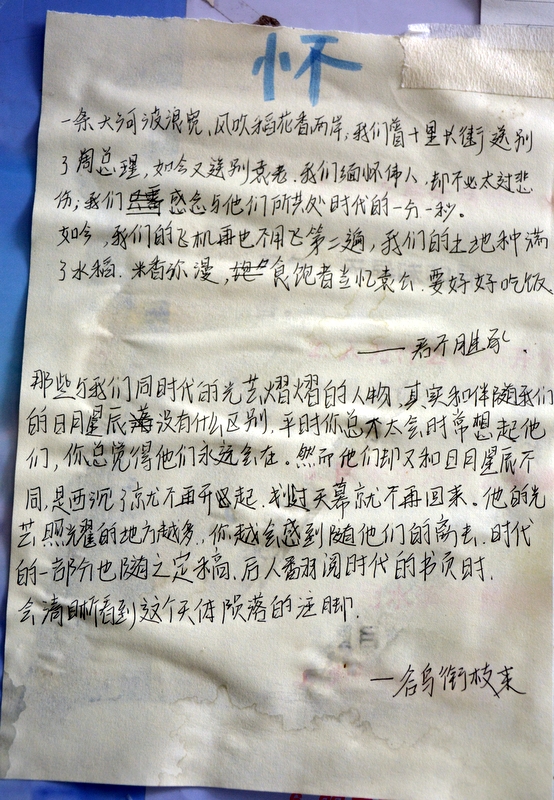 怀
一条大河波浪宽、风吹稻花香两岸,我们曾十里长街送别
了周总理,如今又送别袁老.我们缅怀伟人,却不必太过悲
伤;我们感念与他们所共处时代的一分一秒。
如今,我们的飞机再也不用飞第二遍,我们的土地种满
了水稻.米香弥漫,食饱者当忆袁公.要好好吃饭.
——君不胜
那些与我们同时代的光芒熠熠的人物,其实和伴随我们
的日月星辰没有什么区别.平时你总不太会时常想起他
们,你总觉得他们永远会在。然而他们却又和日月星辰不
同,是西沉了就不再升起,划过天幕就不再回来。他的光
芒照耀的地方越多,你越会感到随他们的离去,时代
的一部分也随之定稿,后人翻阅时代的书页时,
会清晰看到这个天体陨落的注脚.
—鸽鸟衔枝来